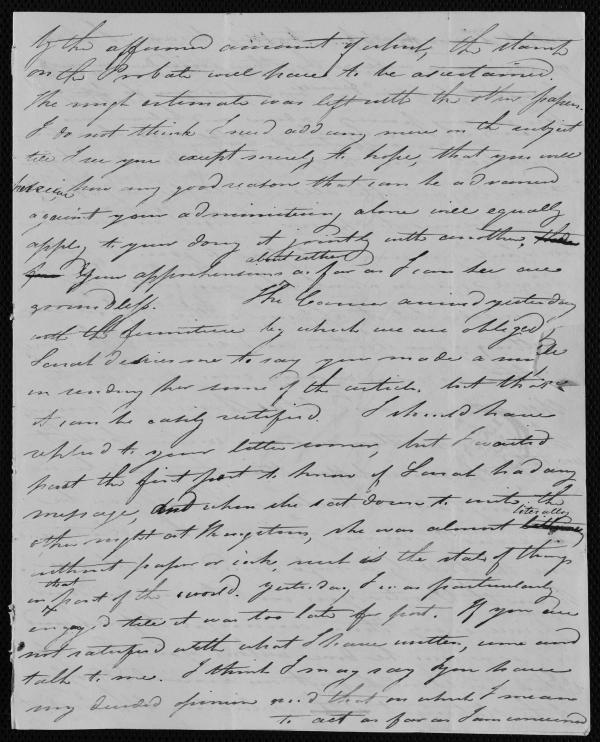 by the assumed amount of which, the stamp
on the Probate will have to be ascertained.
The rough estimate was left with the other papers.
I do not think I need add any more on the subject
till I see you except merely to hope, that you will
perceive, how my good reason that can be advanced
against your administering alone will equally
apply to your doing it jointly with another.
about either
Your apprehensions as far as I can see are
groundless. The Carrier arrived yesterday
with the furniture by which we are obliged,
Sarah desires me to say you made a mistake
in sending her some of the articles. but this
can be easily rectified. I should have
replied to your letter sooner, but I waited
past the first post to know if Sarah had any
message, and when she sat down to write the
literally
other night at she was almost
without paper or ink, such is the state of things
that
in part of the world. yesterday I was particularly
engaged till it was too late for post. If you are
not satisfied with what I have written, come and
talk to me. I think I may say you have
my decided opinion and that on which I mean
to act as far as I am concerned